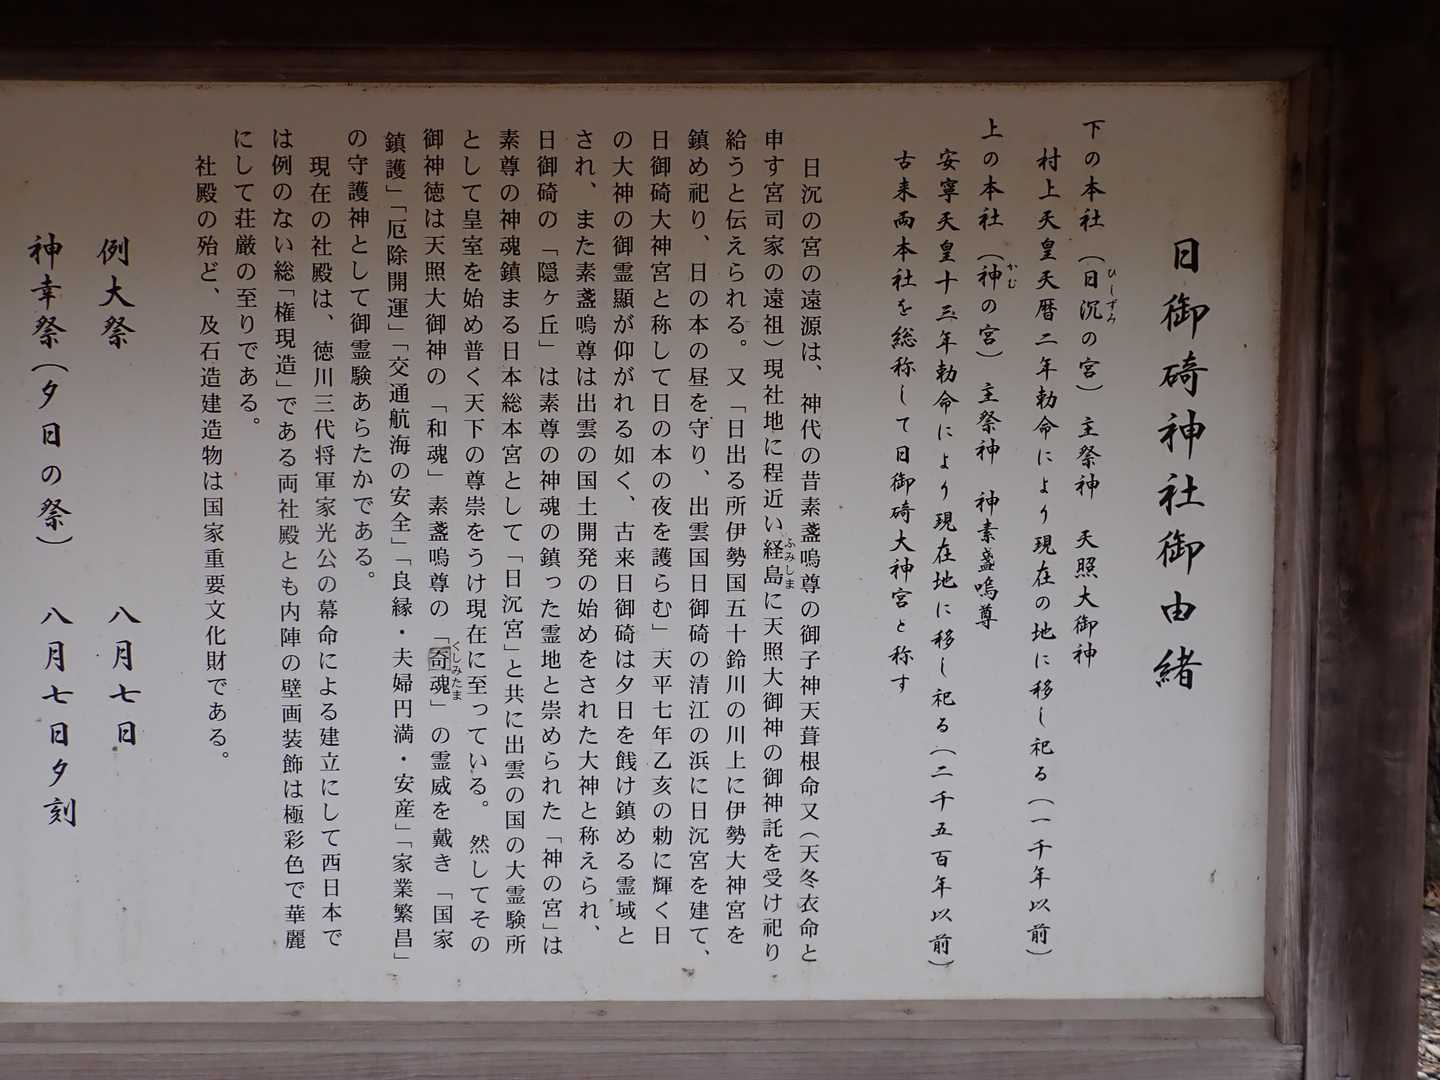 日御碕神社御由緒
下の本社（日沉の宮）主祭神　天照大御神
ひしずみ
村上天皇天暦二年勅命により現在の地に移し祀る（一千年以前）
上の本社（神の宮）主祭神　神素盞嗚尊
かむ
安寧天皇十三年勅命により現在地に移し祀る（二千五百年以前）
古来両本社を総称して日御碕大神宮と称す
日沉の宮の遠源は、神代の昔素盞嗚尊の御子神天葺根命又（天冬衣命と
申す宮司家の遠祖）現社地に程近い経島に天照大御神の御神託を受け祀り
ふみしま
給うと伝えられる。又「日出る所伊勢国五十鈴川の川上に伊勢大神宮を
鎮め祀り、日の本の昼を守り、出雲国日御碕の清江の浜に日沉宮を建て、
日御碕大神宮と称して日の本の夜を護らむ」天平七年乙亥の勅に輝く日
の大神の御霊顯が仰がれる如く、古来日御碕は夕日を餞け鎮める霊域と
され、また素盞嗚尊は出雲の国土開発の始めをされた大神と称えられ、
日御碕の「隠ヶ丘」は素尊の神魂の鎮った霊地と崇められた「神の宮」は
素尊の神魂鎮まる日本総本宮として「日沉宮」と共に出雲の国の大霊験所
として皇室を始め普く天下の尊崇をうけ現在に至っている。然してその
御神徳は天照大御神の「和魂」素盞嗚尊の「奇魂」の霊威を戴き「国家
くしみたま
鎮護」「厄除開運」「交通航海の安全」「良縁・夫婦円満・安産」「家業繁昌」
の守護神として御霊験あらたかである。
現在の社殿は、徳川三代将軍家光公の幕命による建立にして西日本で
は例のない総「権現造」である両社殿とも内陣の壁画装飾は極彩色で華麗
にして荘厳の至りである。
社殿の殆ど、及石造建造物は国家重要文化財である。
例大祭　八月七日
神幸祭（夕日の祭）　八月七日夕刻